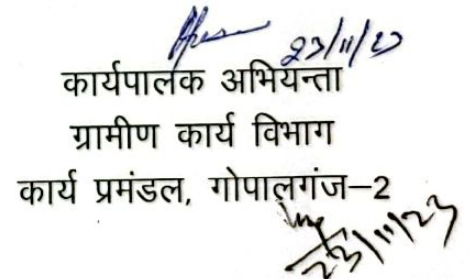 23/11/23
कार्यपालक अभियन्ता
ग्रामीण कार्य विभाग
कार्य प्रमंडल, गोपालगंज–2
23/11/23